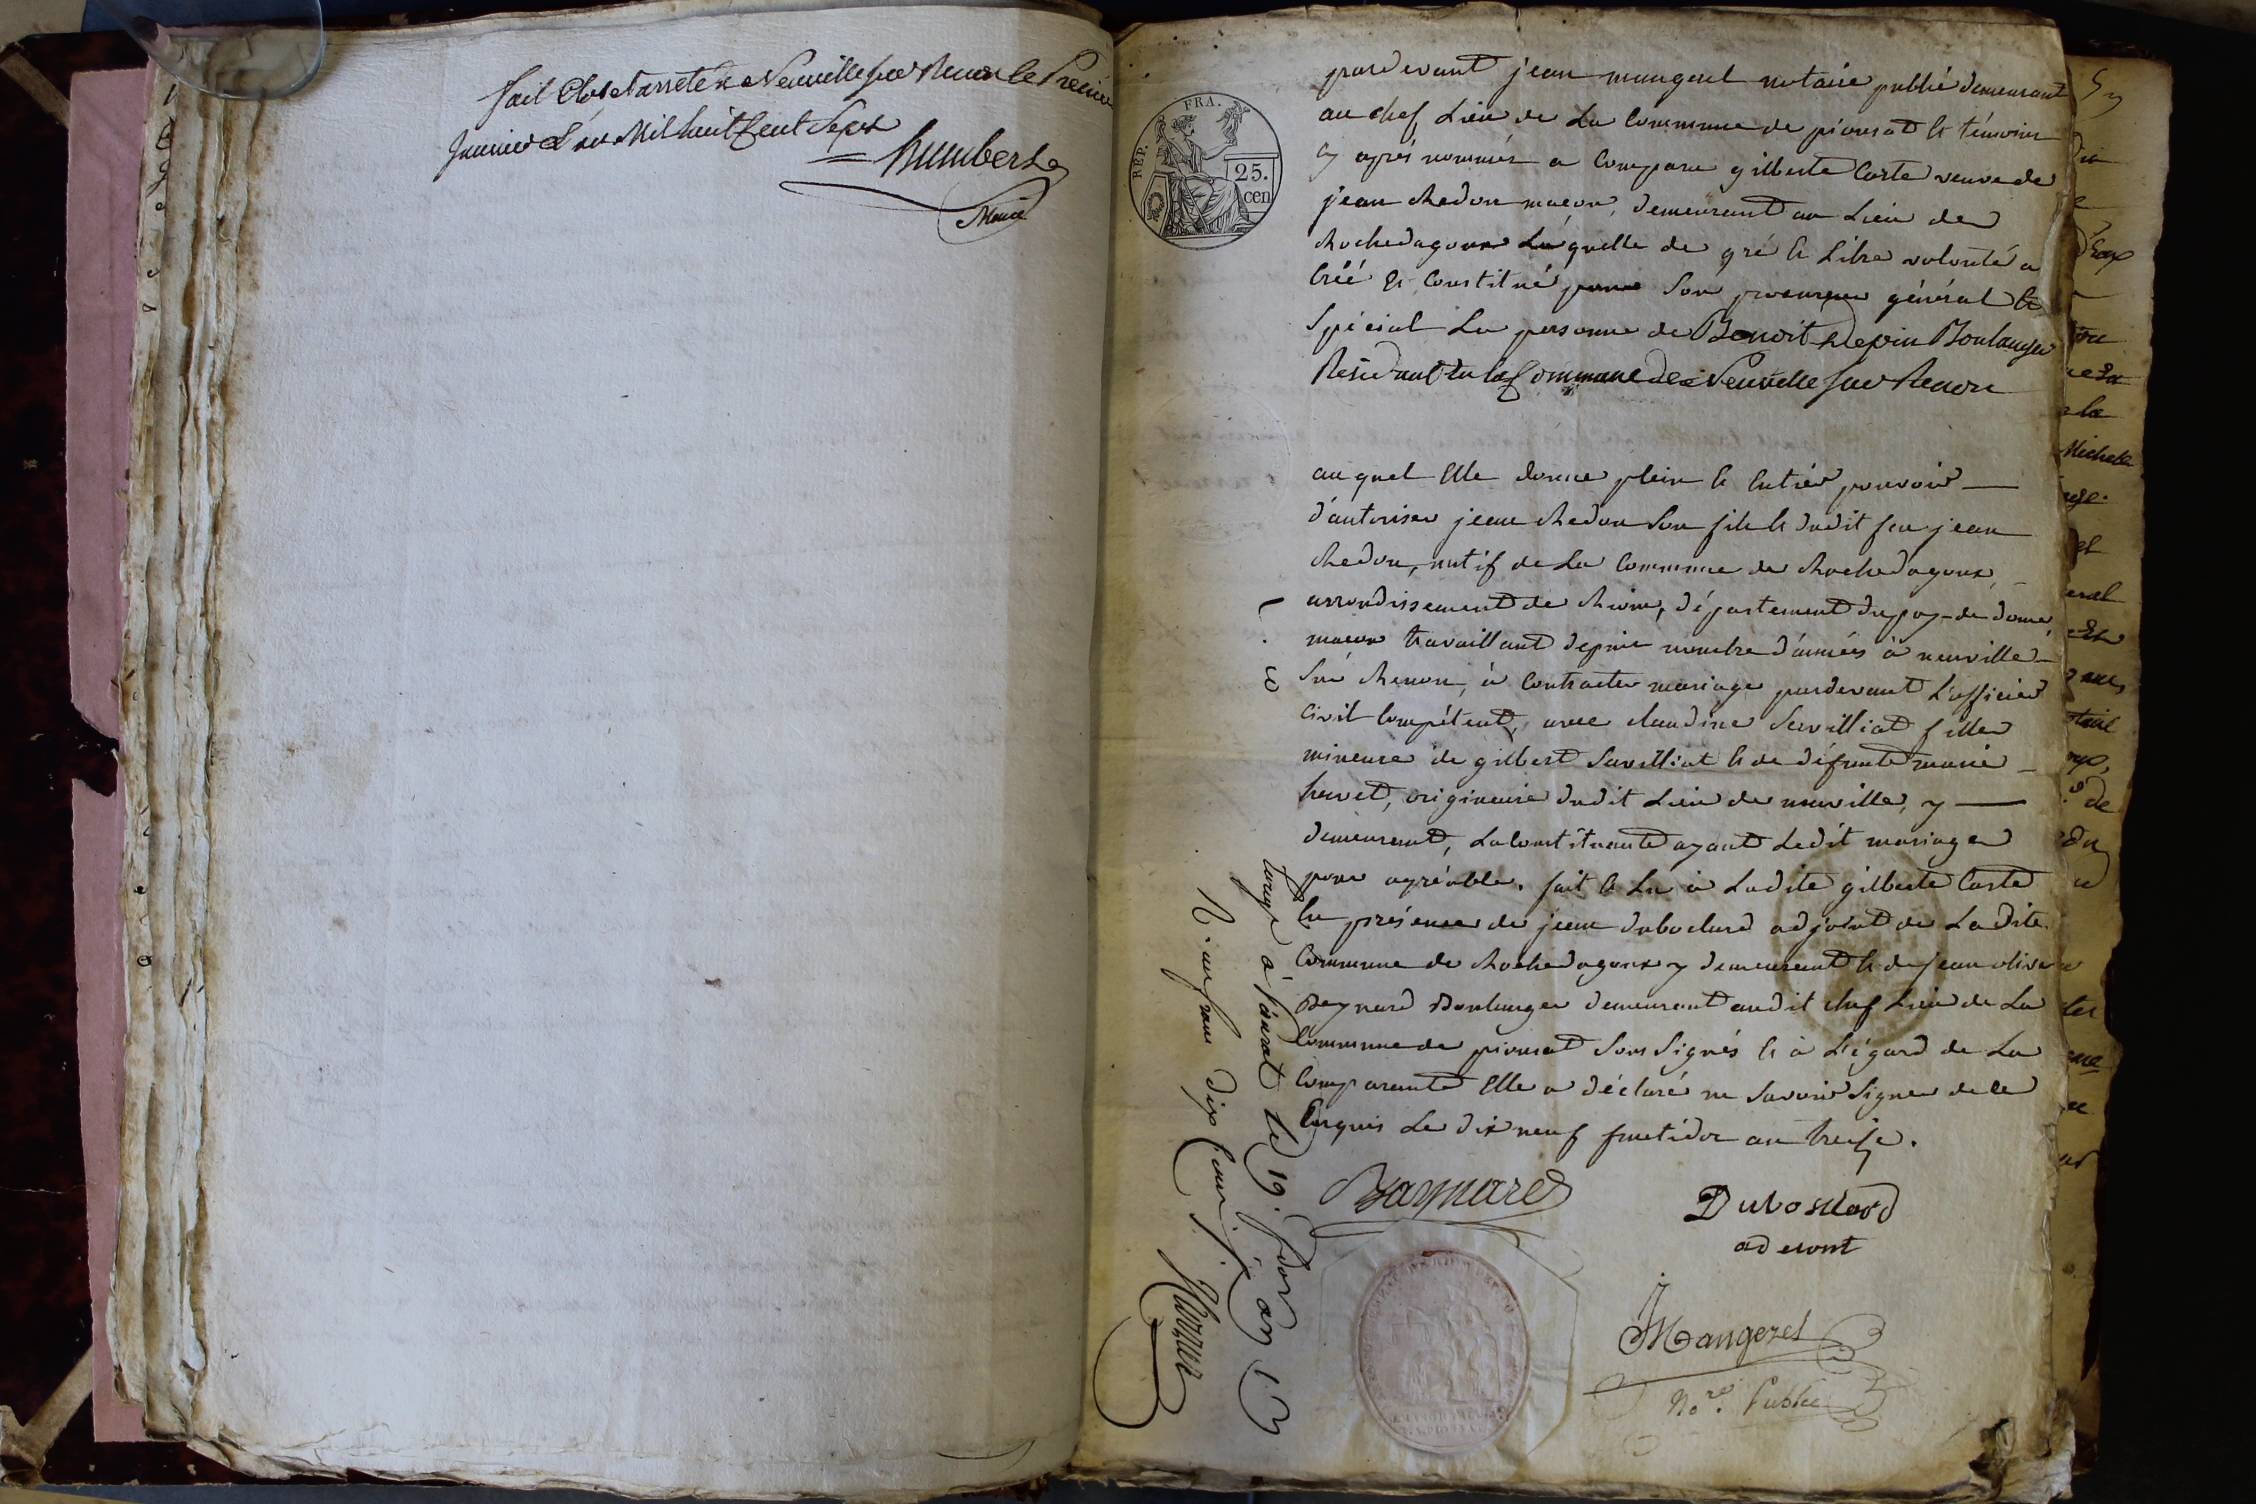 fait Clos et arreté a Neuville sur Renon le Premier
Janvier L'an Mil huit Cent Sept
humbert
Maire
REP. FRA.
25.
cen
pardevant jean mangerel notaire public demeurant
au chef Lieu de La Commune de pionsat et témoins
cy après nommés a Comparu gilberte Carte veuve de
jean chedon maçon, demeurant au Lieu de
Rochedagoux Laquelle de gré et Libre volonté a
Créé et Constitué pour Son procureur général et
Spécial La personne de Benoit Boulanger
Résidant en la Commune de Neuville sur Renon
au quel Elle donne plein et Entier pouvoir
d'autoriser jean chedon Son fils et dudit feu jean
chedon, natif de La Commune de Rochedagoux,
arrondissement de Riom, département du puy-de-dome,
maçon travaillant depuis nombre d'années à neuville
Sur Renon, à Contracter mariage pardevant L'officier
Civil Compétent, avec claudine Servilliat fille
mineure de gilbert Savilliat et de défunte marie
hervet, originaire dudit Lieu de neuville, y
demeurant, La Constituante ayant Ledit mariage
pour agréable. fait et Lu à Ladite gilberte Carte
En présence de jean duboclard adjoint de La dite
Commune de Rochedagoux y demeurant et de jean
Baynard Boulanger demeurant audit chef Lieu de La
Commune de pionsat Sous Signés et à L'égard de La
Comparante Elle a déclaré ne Savoir Signer de ce
Enquis Le dix neuf fructidor an treize.
Baynard
Duboclard
adjoint
JMangerel
No.re Public
Enregt. à pionsat le 19. fdor an 13
R. un franc dix Cent.